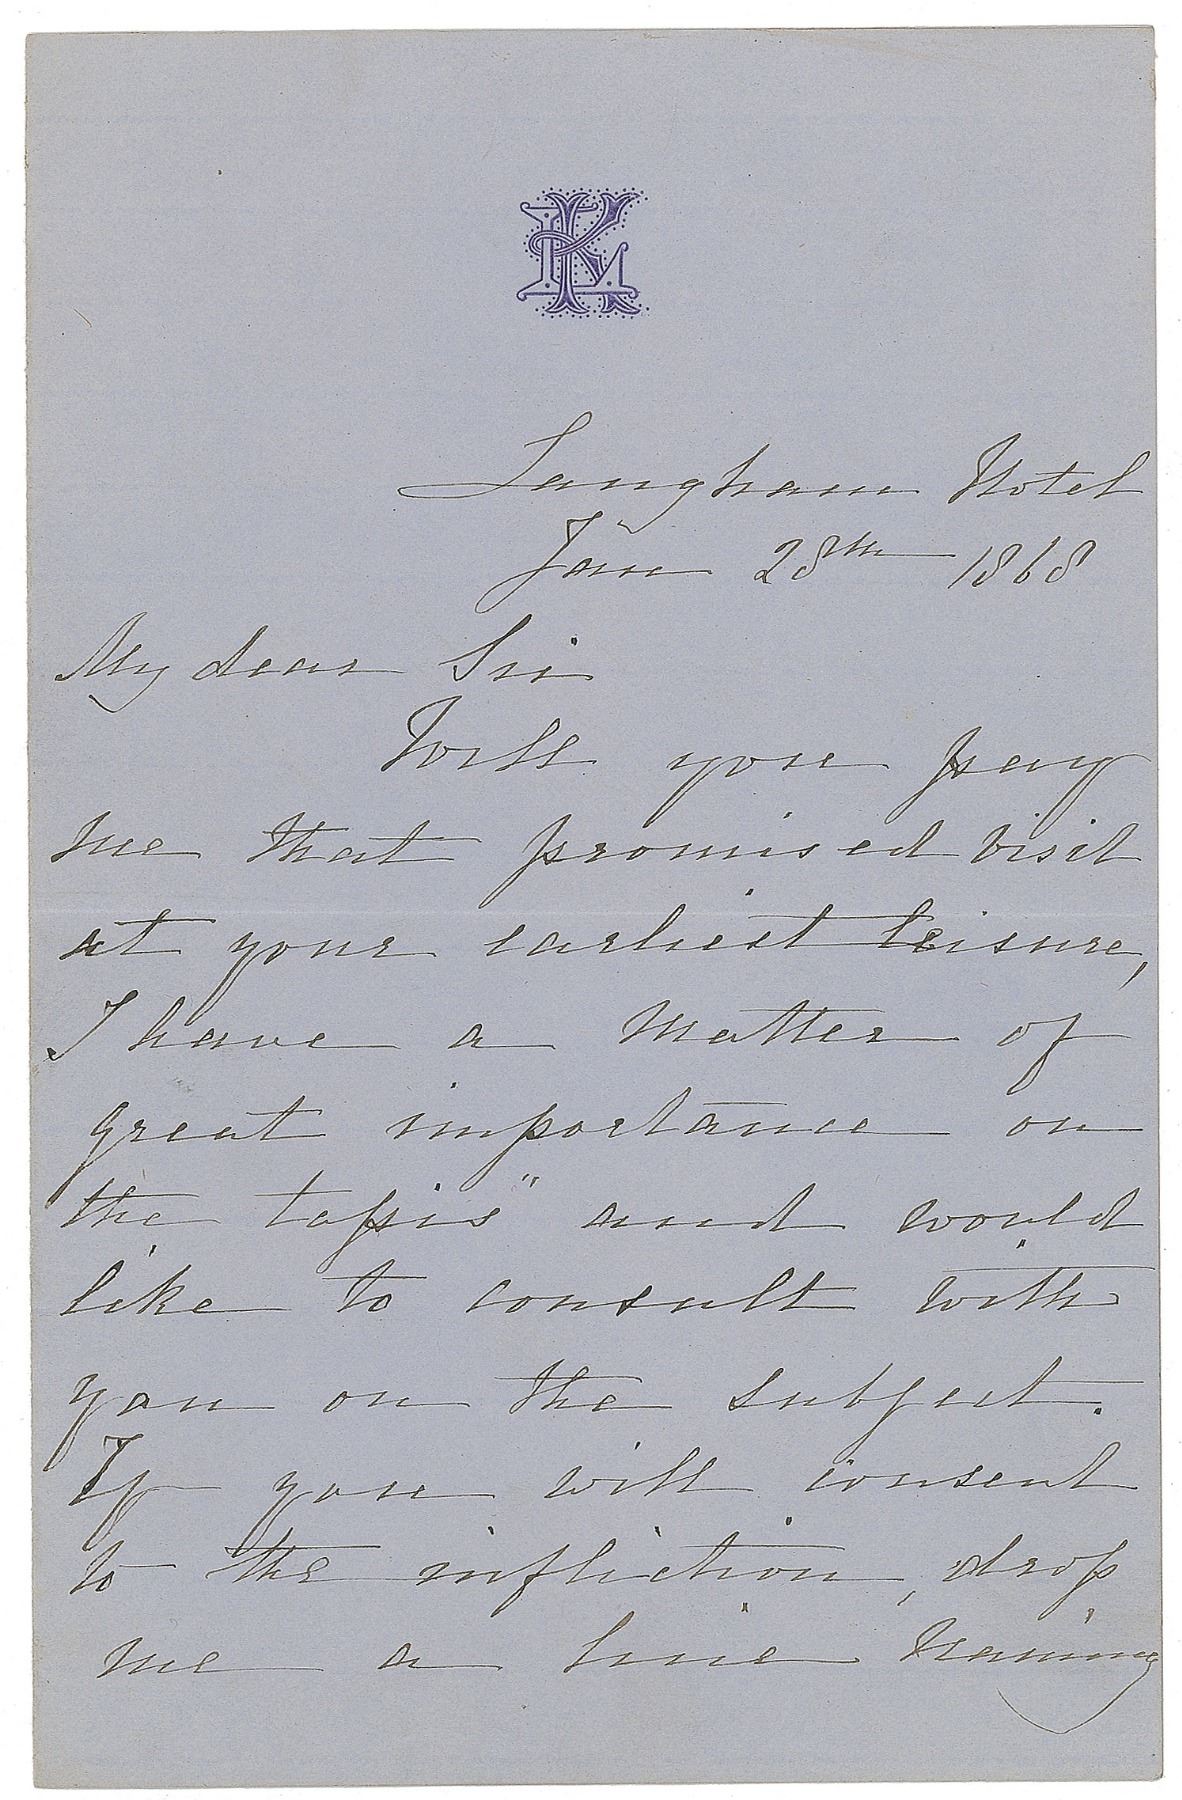 LK
Langham Hotel
Jan 28th 1868
My dear Sir
Will you pay
me that promised visit
at your earliest leisure,
I have a matter of
great importance on
the tapis" and would
like to consult with
you on the subject.
If you will consent
to the infliction, drop
me a line naming